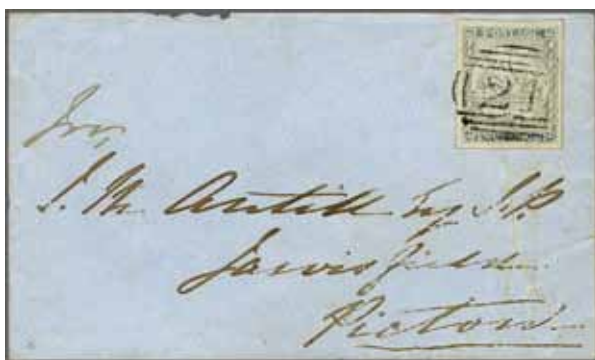 2
J. M. Antill Esq J.P
Jarvisfield
Picton